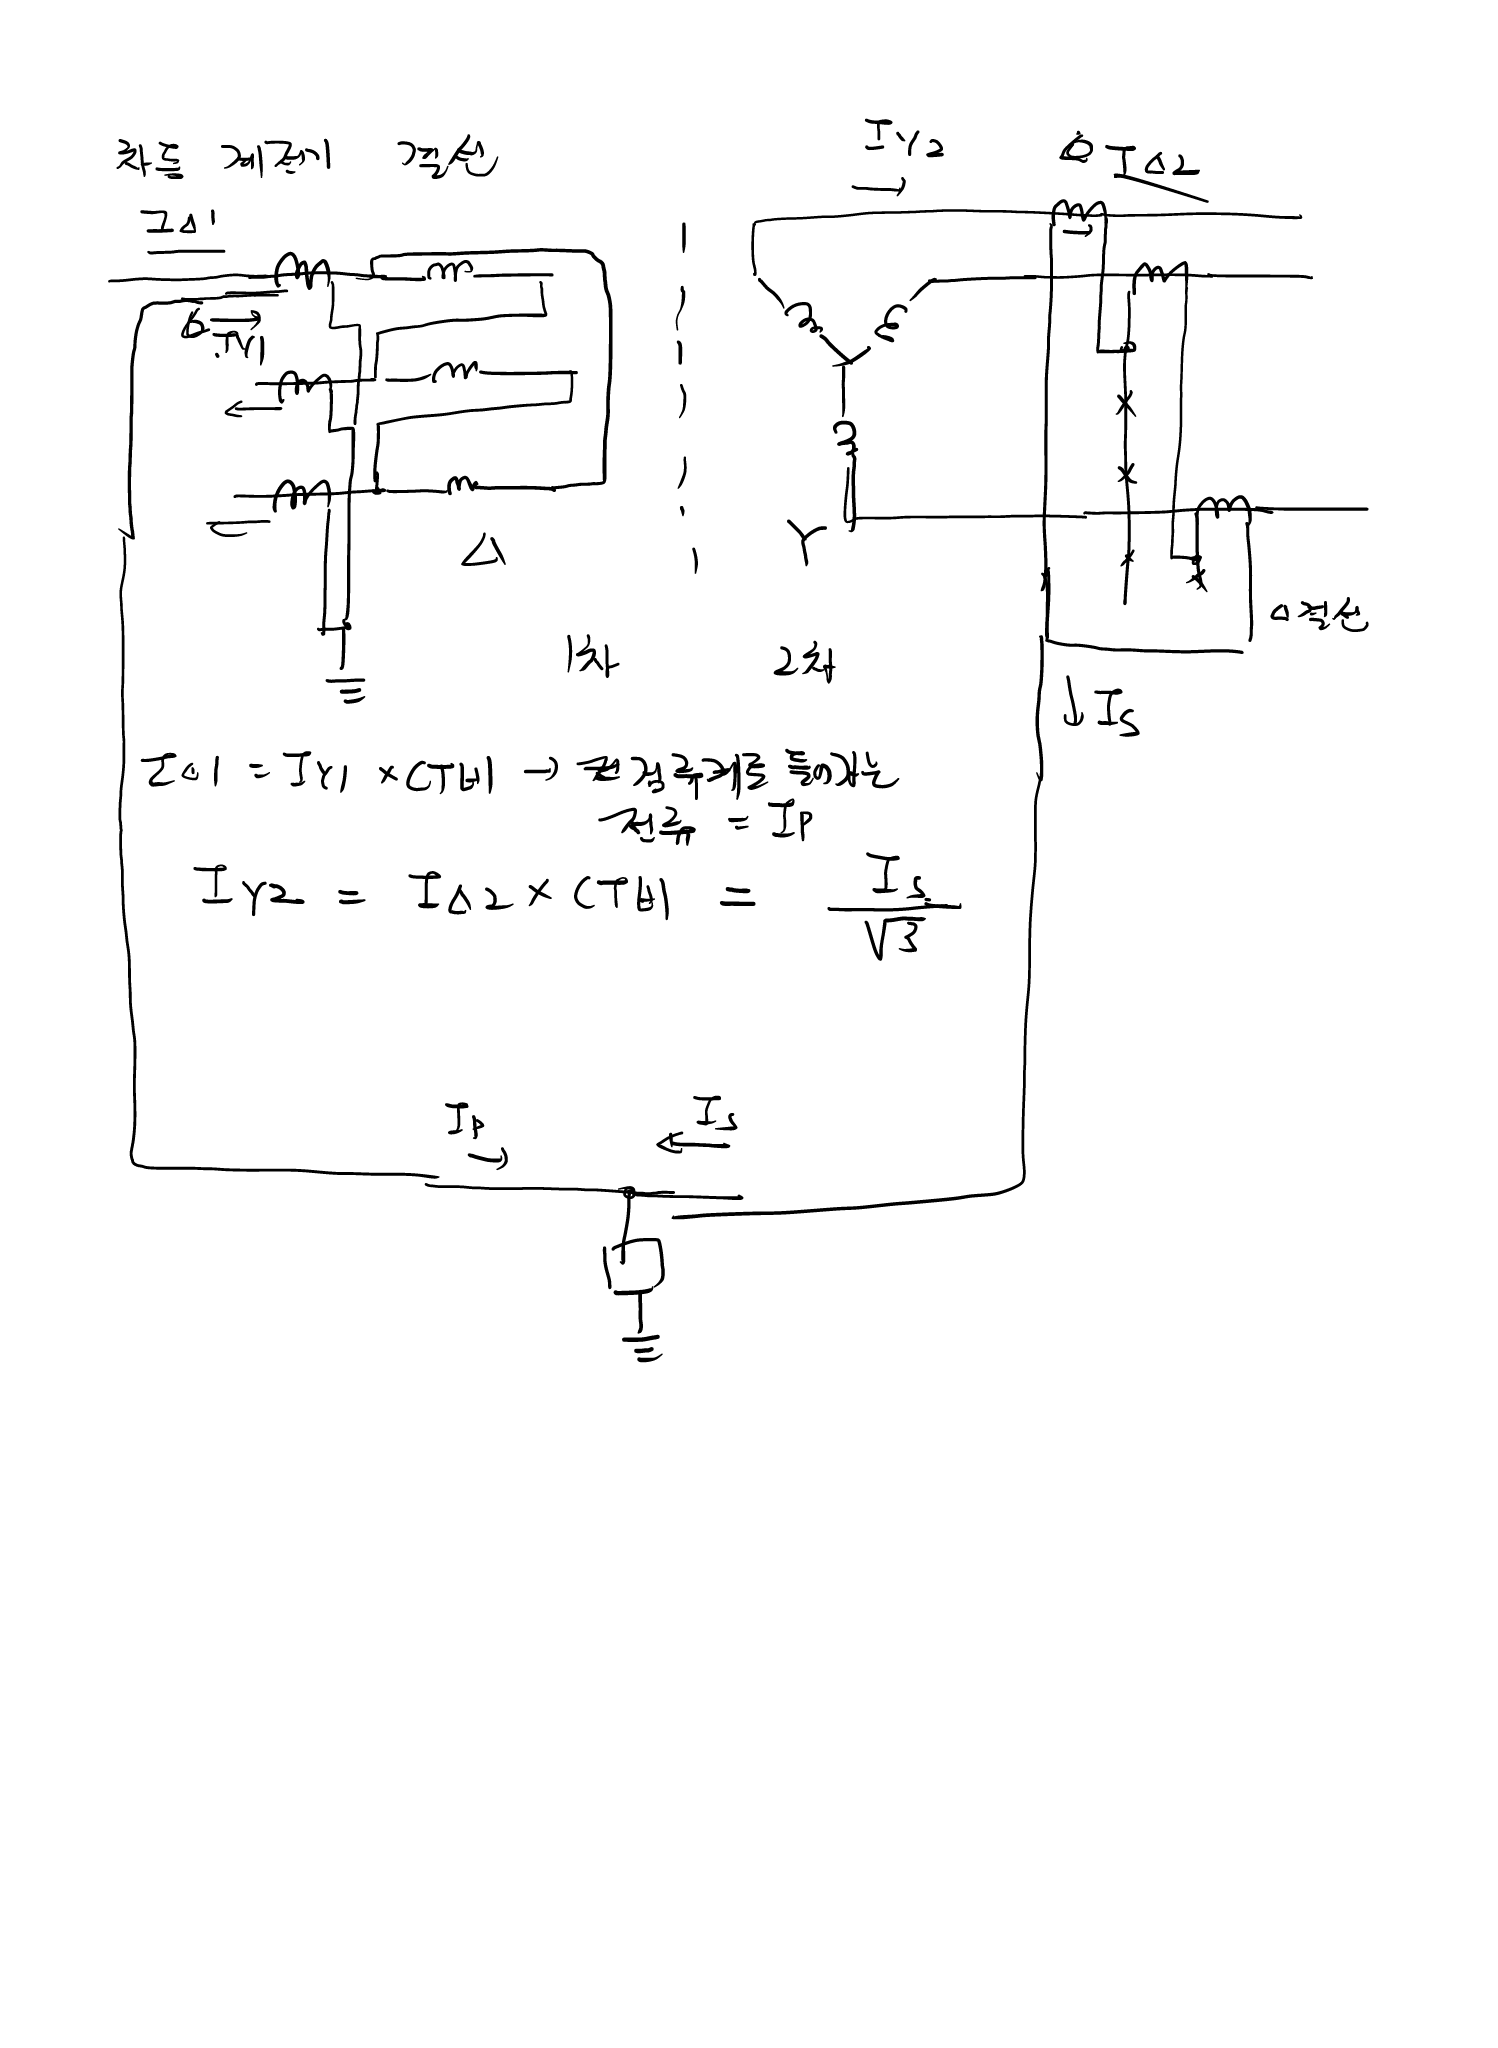 차동 계전기 결선
IΔ1
IY1
Δ
IY2
IΔ2
Y
Δ결선
1차 2차
↓ IS
IΔ1 = IY1 × CT비 → 전검류계로 들어가는
전류 = IP
IY2 = IΔ2 × CT비 = IS / √3
IP IS